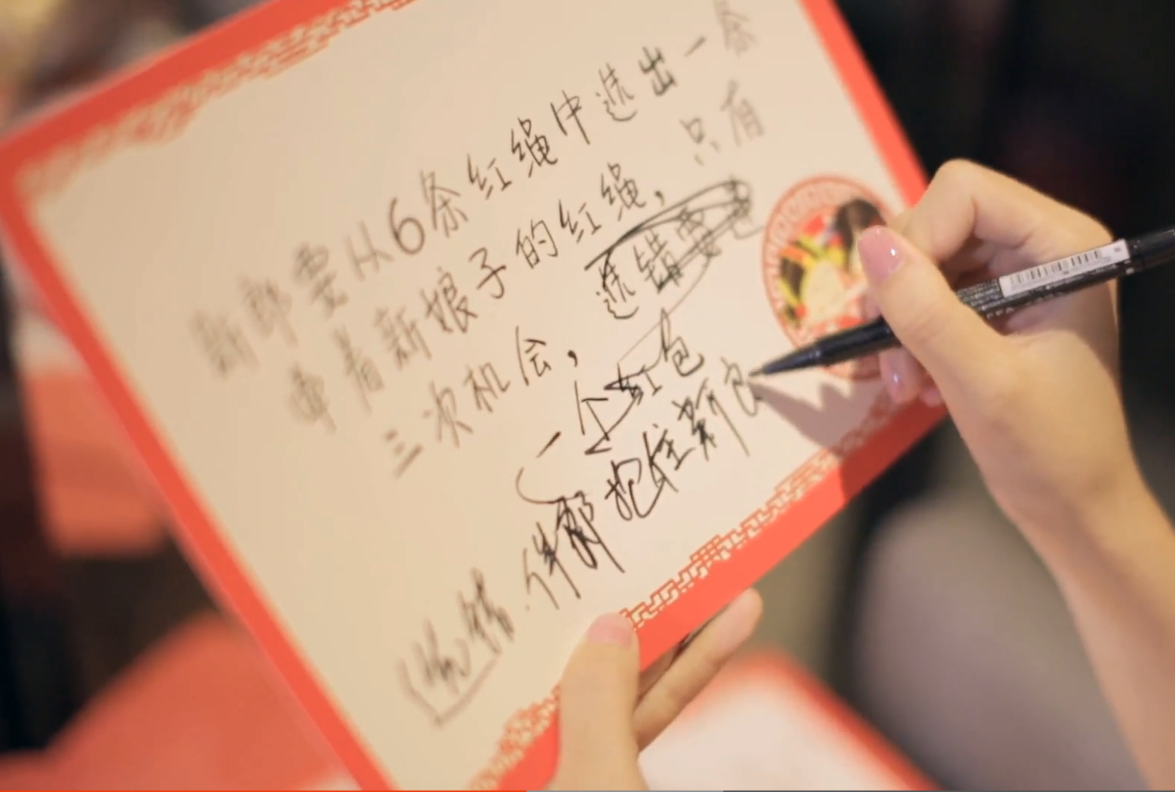 新郎要从6条红绳中选出一条
牵着新娘子的红绳，只有
三次机会，选错要包
一个红包
选错.伴郎抱住新